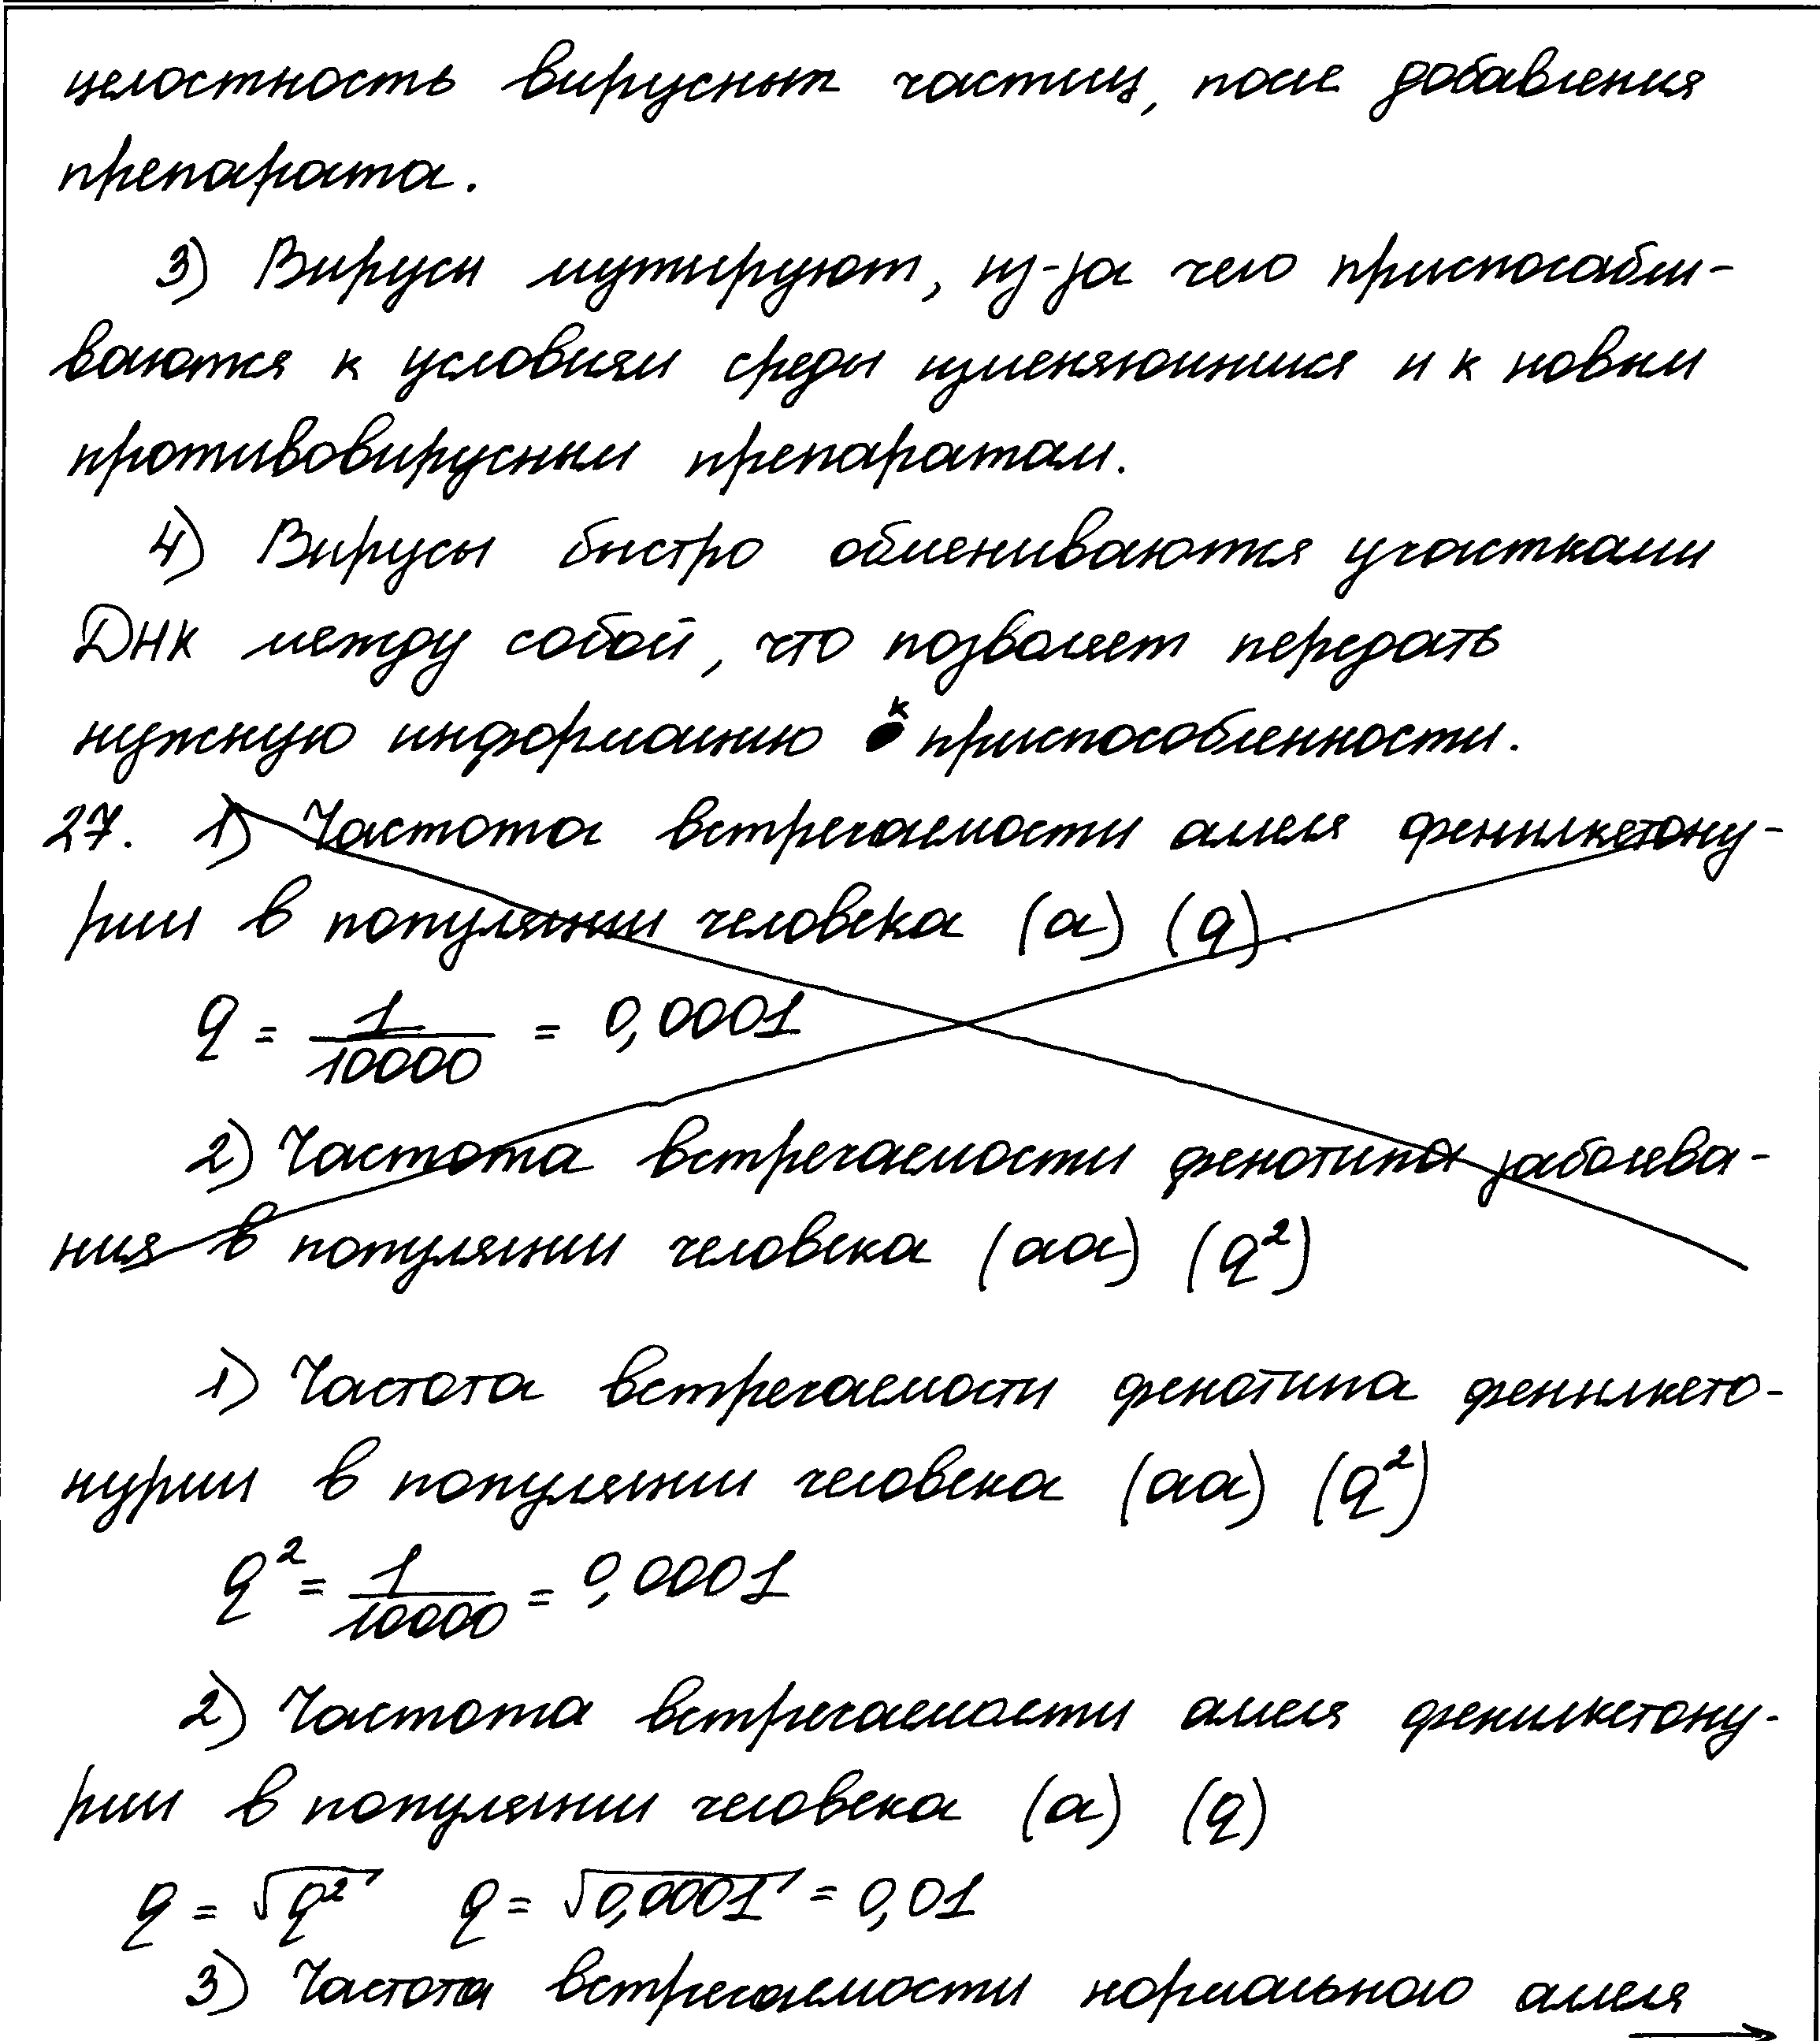 целостность вирусных частиц, после добавления
препарата.
3) Вирусы мутируют, из-за чего приспосабли-
ваются к условиям среды изменяющимися и к новым
противовирусным препаратам.
4) Вирусы быстро обмениваются участками
ДНК между собой, что позволяет передать
нужную информацию к приспособленности.
27. 1) Частота встречаемости аллеля фенилкетону-
рии в популяции человека (a) (q).
q = 1/10000 = 0,0001
2) Частота встречаемости фенотипа заболева-
ния в популяции человека (aa) (q²)
1) Частота встречаемости фенотипа фенилкето-
нурии в популяции человека (aa) (q²)
q² = 1/10000 = 0,0001
2) Частота встречаемости аллеля фенилкетону-
рии в популяции человека (a) (q)
q = √q² q = √0,0001 = 0,01
3) Частота встречаемости нормального аллеля